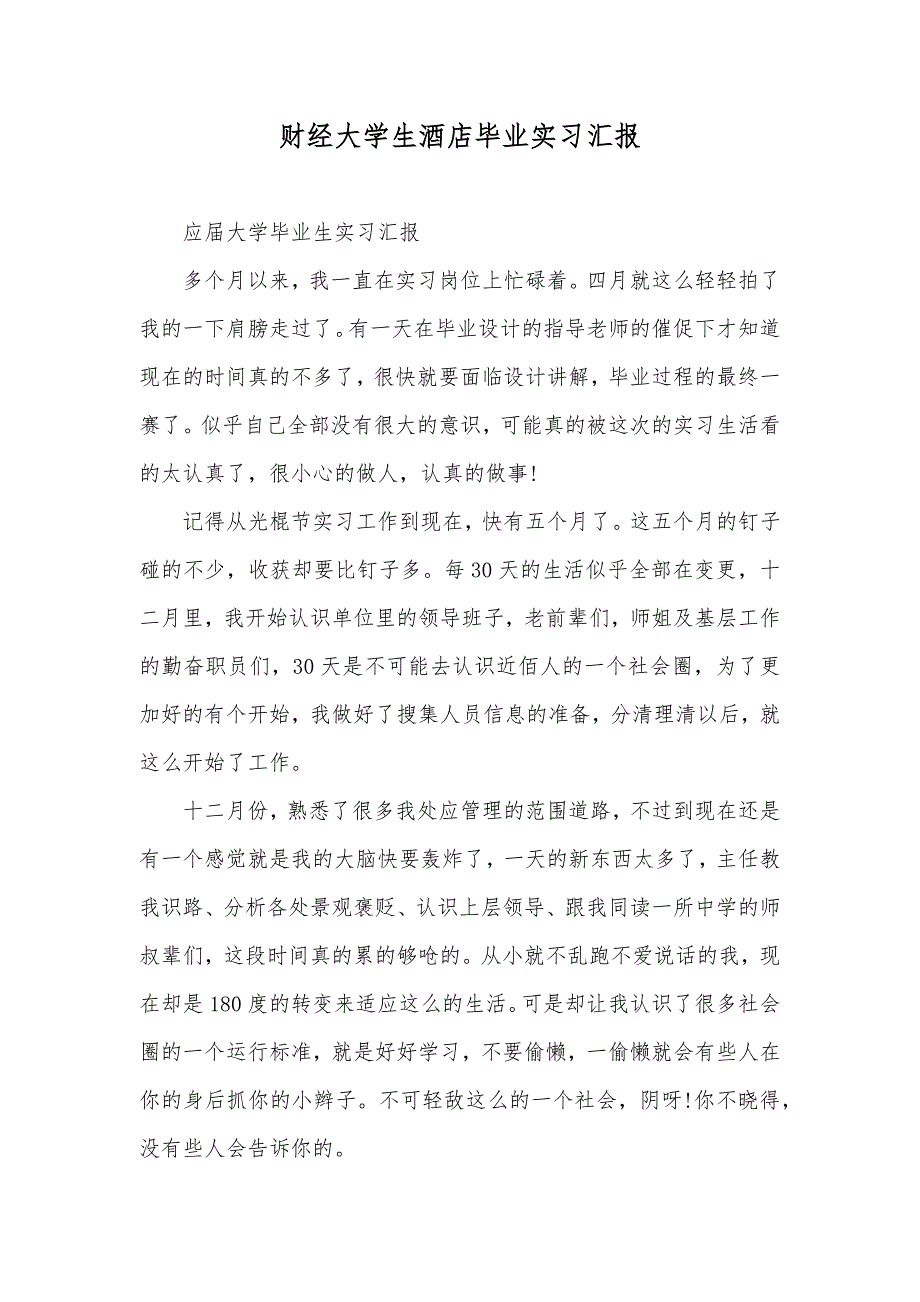 财经大学生酒店毕业实习汇报
应届大学毕业生实习汇报
多个月以来，我一直在实习岗位上忙碌着。四月就这么轻轻拍了
我的一下肩膀走过了。有一天在毕业设计的指导老师的催促下才知道
现在的时间真的不多了，很快就要面临设计讲解，毕业过程的最终一
赛了。似乎自己全部没有很大的意识，可能真的被这次的实习生活看
的太认真了，很小心的做人，认真的做事!
记得从光棍节实习工作到现在，快有五个月了。这五个月的钉子
碰的不少，收获却要比钉子多。每30天的生活似乎全部在变更，十
二月里，我开始认识单位里的领导班子，老前辈们，师姐及基层工作
的勤奋职员们，30天是不可能去认识近佰人的一个社会圈，为了更
加好的有个开始，我做好了搜集人员信息的准备，分清理清以后，就
这么开始了工作。
十二月份，熟悉了很多我处应管理的范围道路，不过到现在还是
有一个感觉就是我的大脑快要轰炸了，一天的新东西太多了，主任教
我识路、分析各处景观褒贬、认识上层领导、跟我同读一所中学的师
叔辈们，这段时间真的累的够呛的。从小就不乱跑不爱说话的我，现
在却是180度的转变来适应这么的生活。可是却让我认识了很多社会
圈的一个运行标准，就是好好学习，不要偷懒，一偷懒就会有些人在
你的身后抓你的小辫子。不可轻敌这么的一个社会，阴呀!你不晓得，
没有些人会告诉你的。